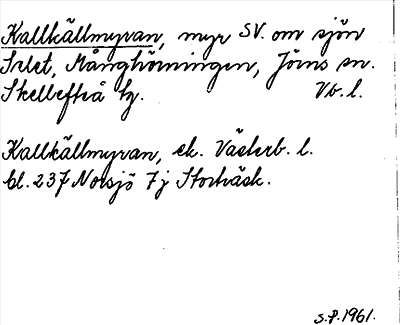 Kallkällmyran, myr SV. om sjön
Srlet, Månghörningen, Jörns sn.
Skellefteå tg. Vb. l.
Kallkällmyran, ek. Västerb. l.
bl. 237 Norsjö 7j Storträsk.
S.P. 1961.